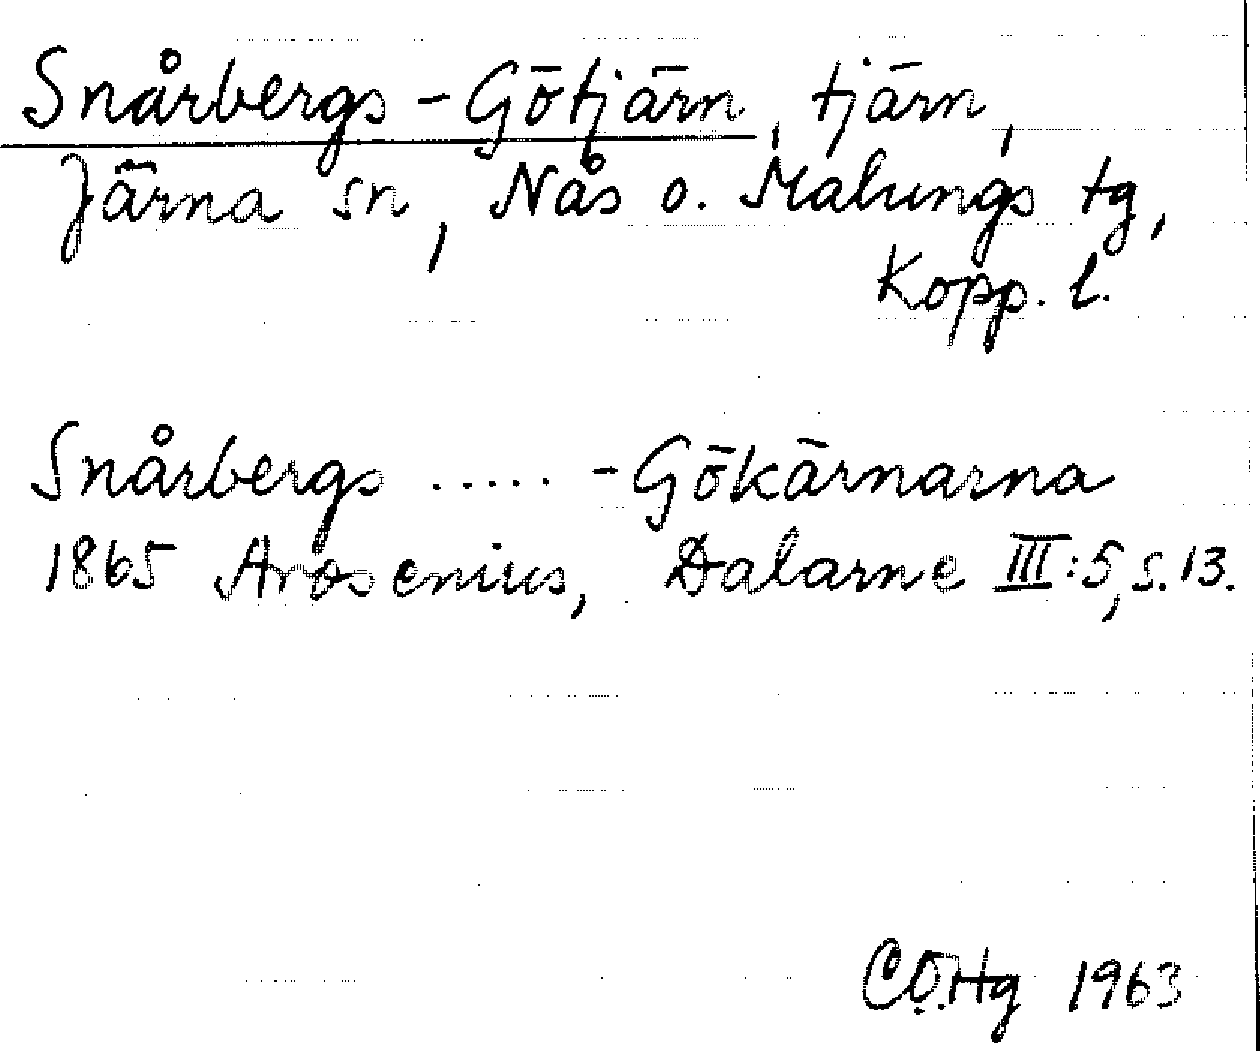 Snårbergs-Götjärn, tjärn,
Järna sn, Nås o. Malungs tg,
Kopp. l.
Snårbergs ..... -Gökärnarna
1865 Arosenius, Dalarne III:5, s. 13.
C.Ö.Hg 1963